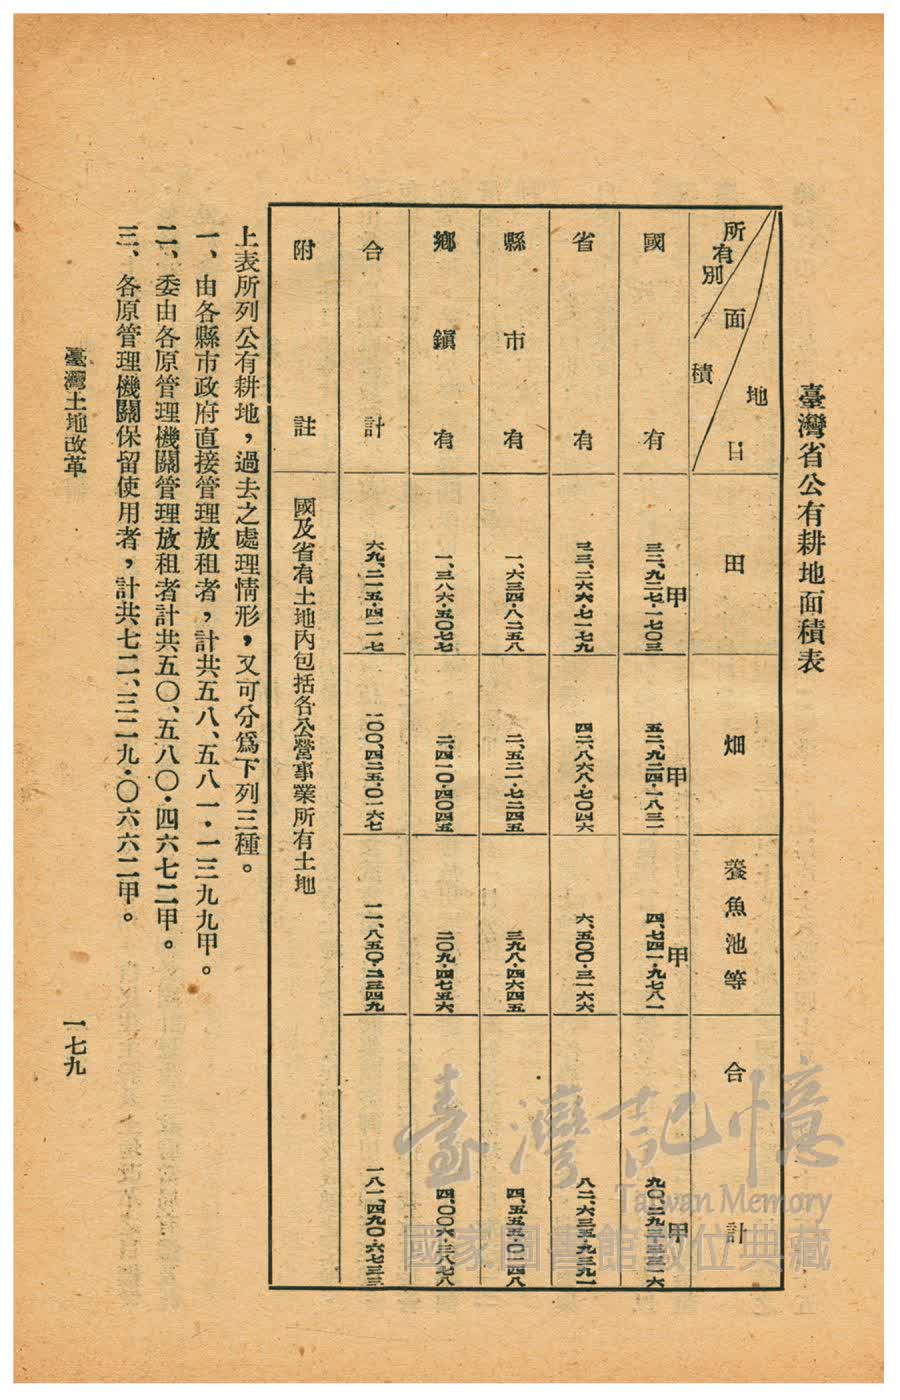 臺灣省公有耕地面積表
所有別 面積 地目
田
畑
養魚池等
合計
國有
甲
三二、九二七・一七〇三
甲
五二、九二四・一八三二
甲
四、七四一・九七八一
甲
九〇、二九三・三三一六
省有
三三、二六六・七一七九
四二、八六八・七〇四六
六、五〇〇・三一六六
八二、六三五・九三九一
縣市有
一、六三四・八二五八
二、五二一・七二四五
三九八・四六四五
四、五五五・〇一四八
鄉鎮有
一、三八六・五〇七七
二、四一〇・四〇四五
二〇九・四七五六
四、〇〇六・三八七八
合計
六九、二一五・四二一七
一〇〇、四二五・〇一六七
一一、八五〇・二三四九
一八一、四九〇・六七三三
附註
國及省有土地內包括各公營事業所有土地
上表所列公有耕地，過去之處理情形，又可分爲下列三種。
一、由各縣市政府直接管理放租者，計共五八、五八一・一三九九甲。
二、委由各原管理機關管理放租者計共五〇、五八〇・四六七二甲。
三、各原管理機關保留使用者，計共七二、三二九・〇六六二甲。
臺灣土地改革
一七九
臺灣記憶
Taiwan Memory
國家圖書館數位典藏